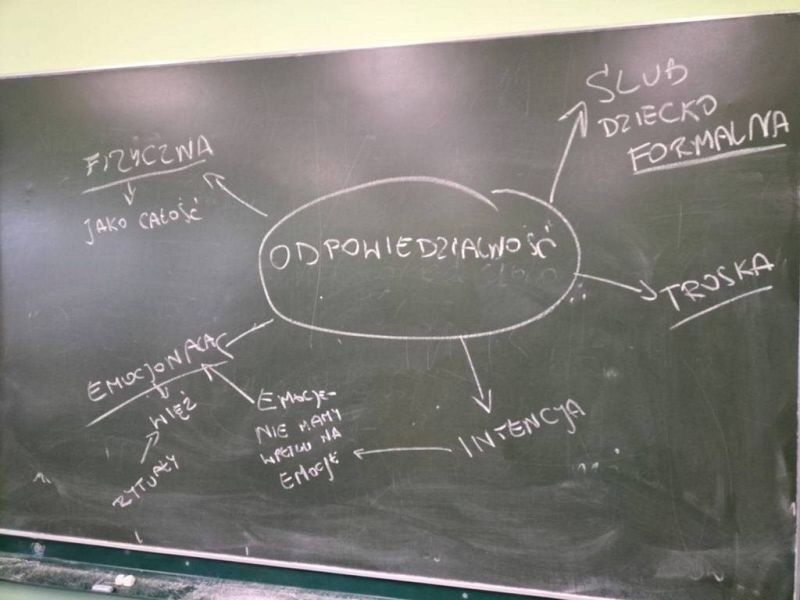 ŚLUB
DZIECKO
FORMALNA
FIZYCZNA
JAKO CAŁOŚĆ
ODPOWIEDZIALNOŚĆ
TROSKA
WIĘŹ
RYTUAŁY
EMOCJE-
NIE MAMY
WPŁYWU NA
EMOCJE
INTENCJA